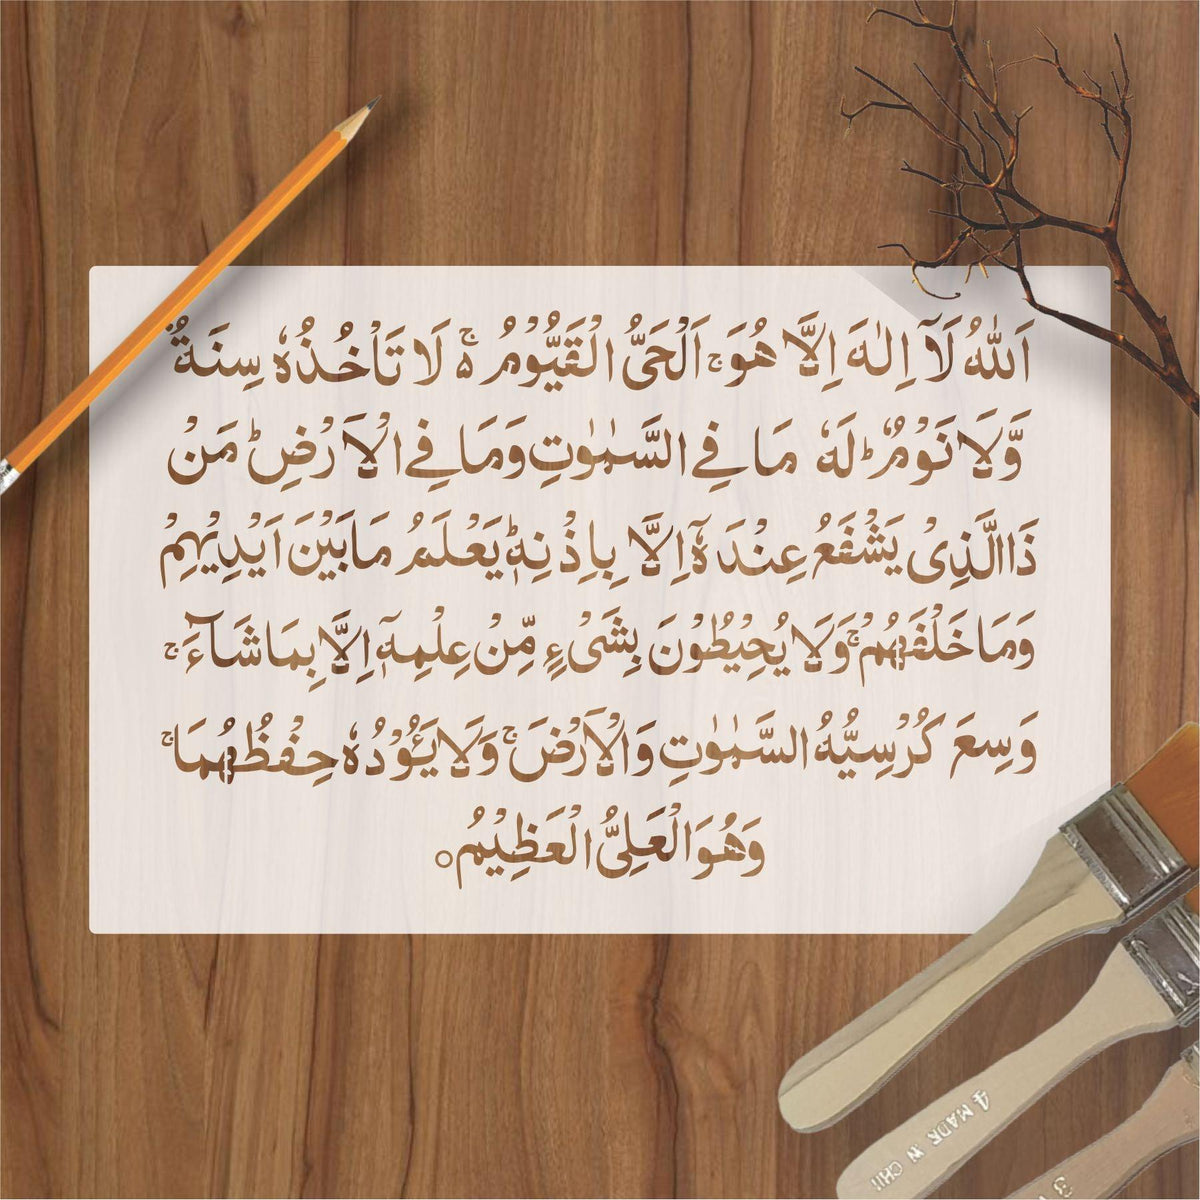 اَللّٰهُ لَآ اِلٰهَ اِلَّا هُوَ ۚ اَلْحَیُّ الْقَیُّوْمُ ۚ۬ لَا تَاْخُذُهٗ سِنَةٌ
وَّلَا نَوْمٌ ؕ لَهٗ مَا فِی السَّمٰوٰتِ وَمَا فِی الْاَرْضِ ؕ مَنْ
ذَا الَّذِیْ یَشْفَعُ عِنْدَهٗۤ اِلَّا بِاِذْنِهٖ ؕ یَعْلَمُ مَا بَیْنَ اَیْدِیْهِمْ
وَمَا خَلْفَهُمْ ۚ وَلَا یُحِیْطُوْنَ بِشَیْءٍ مِّنْ عِلْمِهٖۤ اِلَّا بِمَا شَآءَ ۚ
وَسِعَ كُرْسِیُّهُ السَّمٰوٰتِ وَالْاَرْضَ ۚ وَلَا یَـُٔوْدُهٗ حِفْظُهُمَا ۚ
وَهُوَ الْعَلِیُّ الْعَظِیْمُ ○
4 MADE IN CHI
3